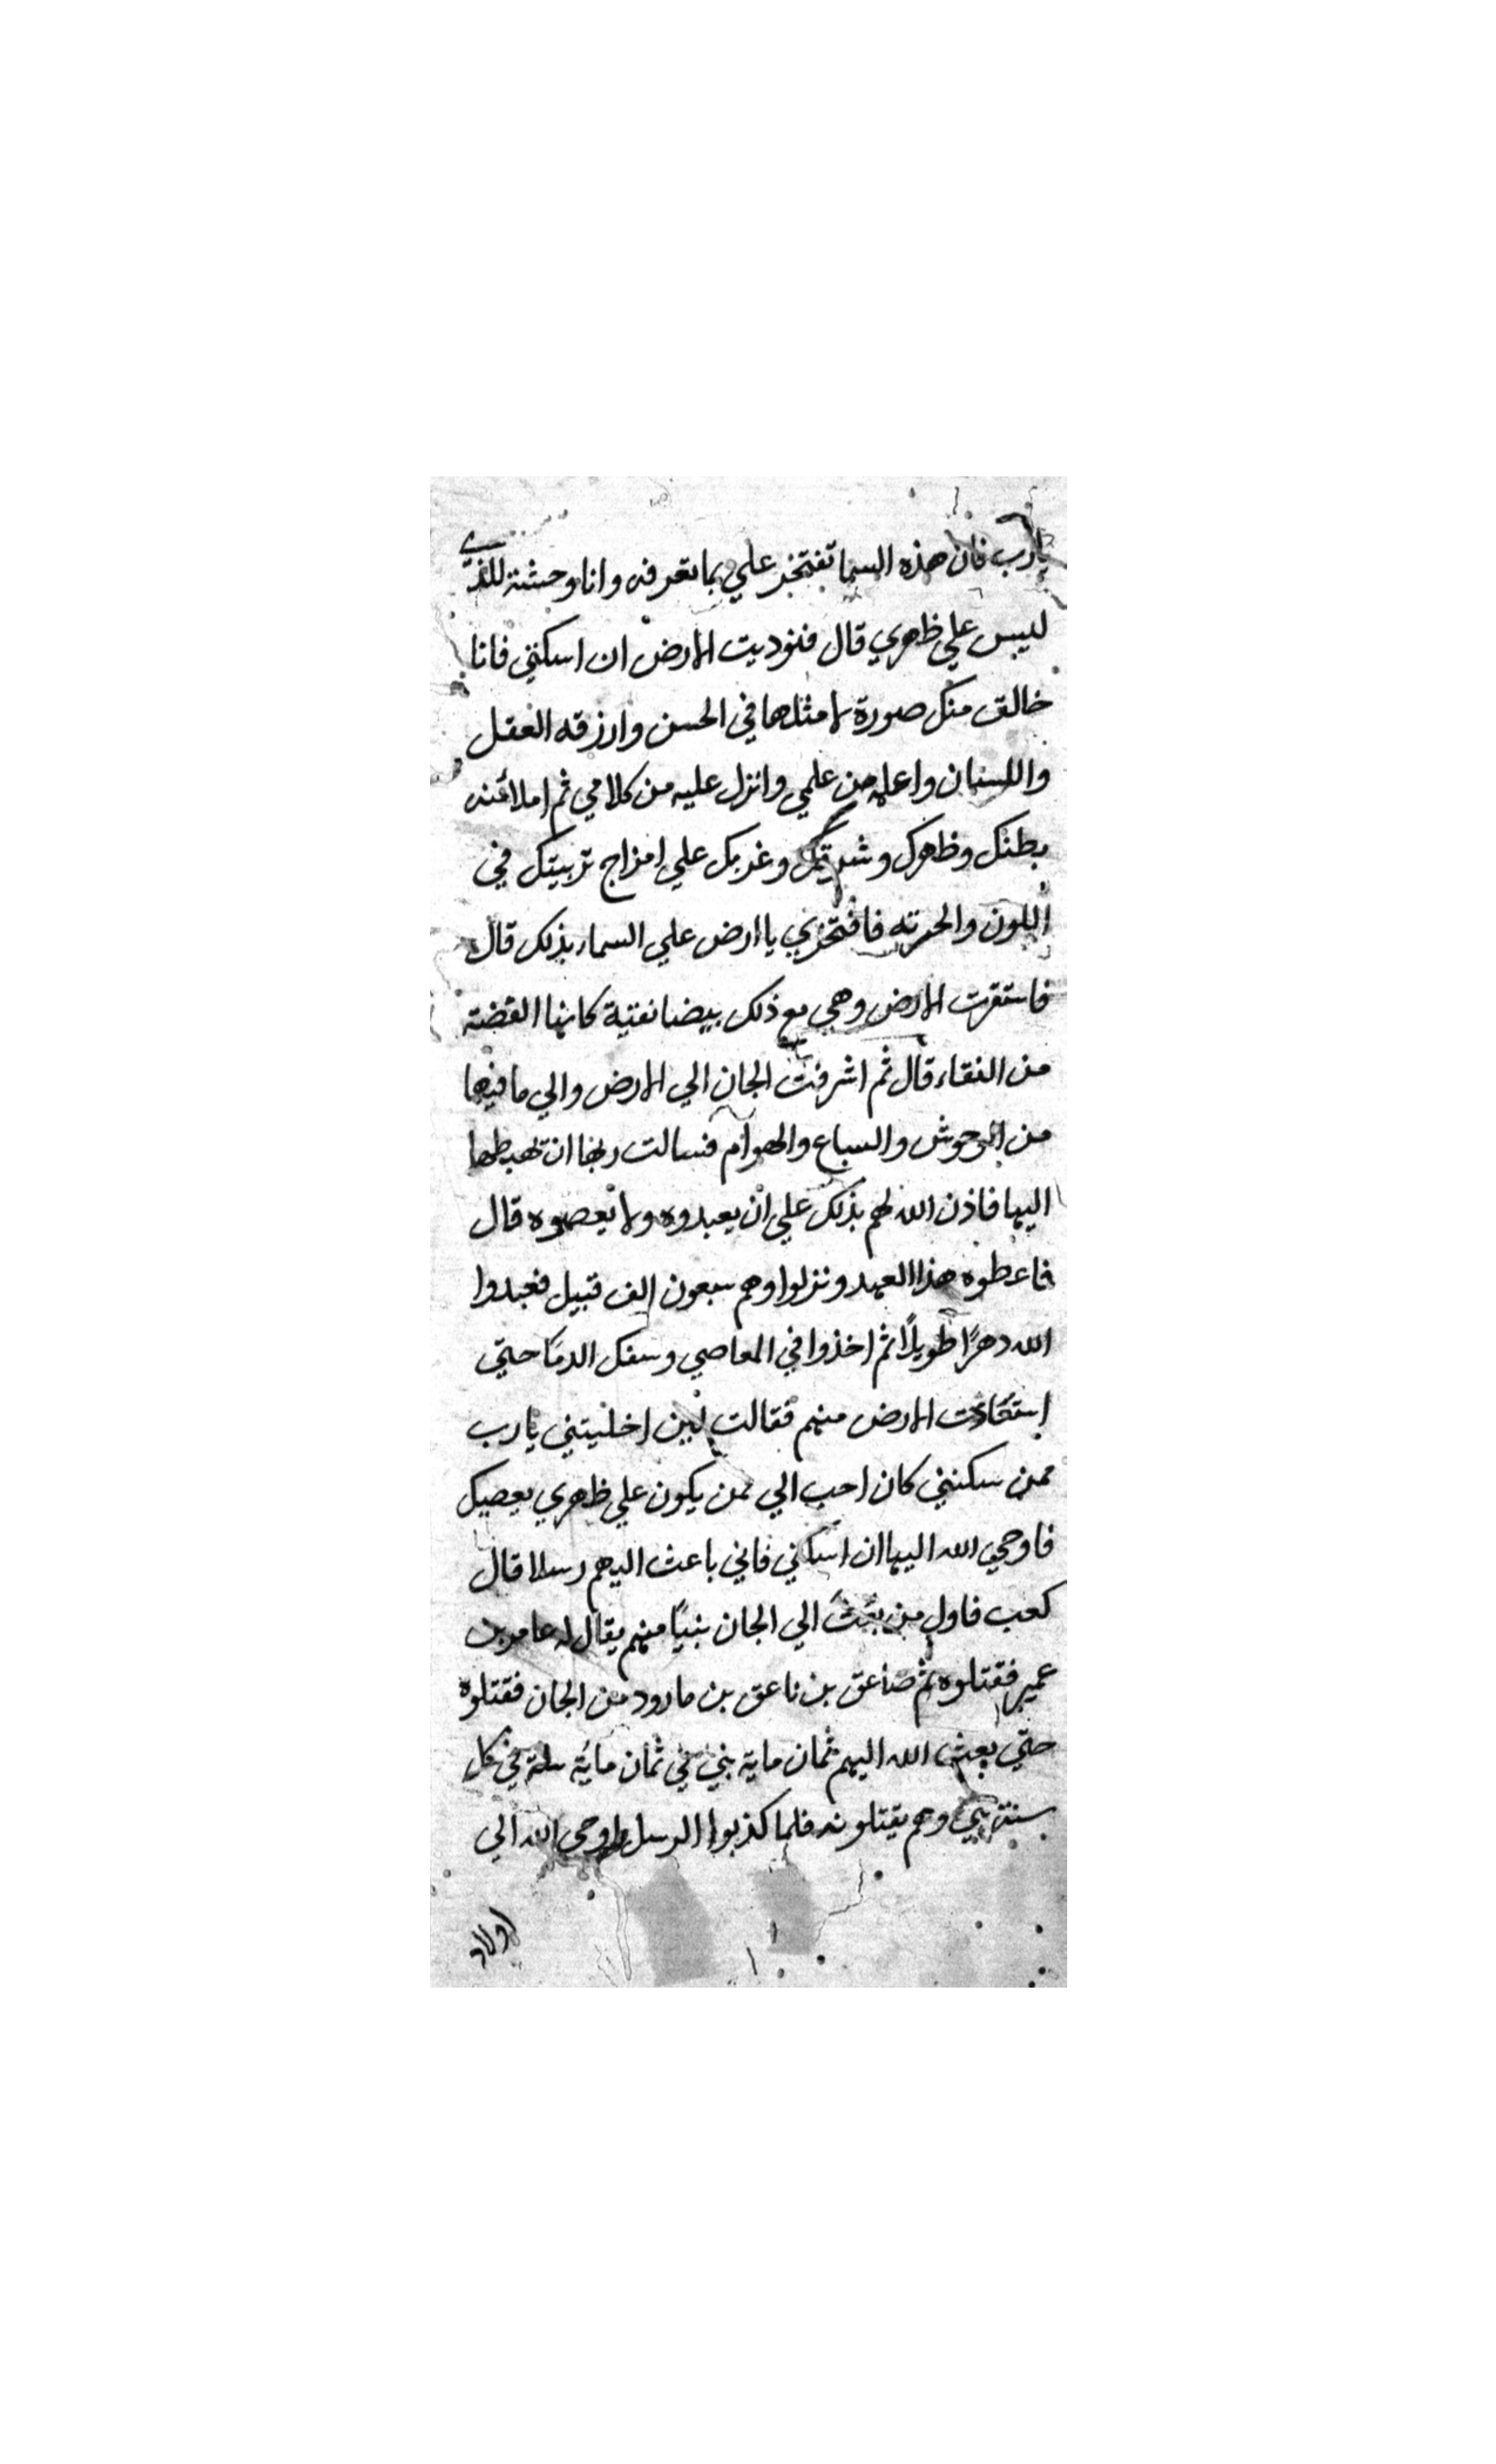 يارب فان هذه السما تفتخر علي بما تعرفه وانا وحشة للذي
ليس علي ظهري قال فنوديت الارض ان اسكني فانا
خالق منك صورة لا مثلها في الحسن وارزقه العقل
واللسان واعلمه من علمي وانزل عليه من كلامي ثم املأ منه
بطنك وظهرك وشرقك وغربك علي امزاج تربيتك في
اللون والحرته فافتخري يا ارض علي السماء بذلك قال
فاستقرت الارض وهي مع ذلك بيضا نقية كانها الفضة
من النقاء قال ثم اشرفت الجان الي الارض والي ما فيها
من الوحوش والسباع والهوام فسالت ربها ان تهبطها
اليها فاذن الله لهم بذلك علي ان يعبدوه ولا يعصوه قال
فاعطوه هذا العهد ونزلوا وهم سبعون الف قبيل فعبدوا
الله دهرًا طويلاً ثم اخذوا في المعاصي وسفك الدما حتي
استغاثت الارض منهم فقالت لين اخليتني يارب
ممن سكنني كان احب الي ممن يكون علي ظهري يعصيك
فاوحي الله اليها ان اسكني فاني باعث اليهم رسلا قال
كعب فاول من بعث الي الجان نبيًا منهم يقال له عامر بن
عمير فقتلوه ثم صاعق بن ناعق بن مارود من الجان فقتلوه
حتي بعث الله اليهم ثمان ماية نبي في ثمان ماية سنة في كل
سنة نبي وهم يقتلونه فلما كذبوا الرسل اوحي الله الي
اولاد